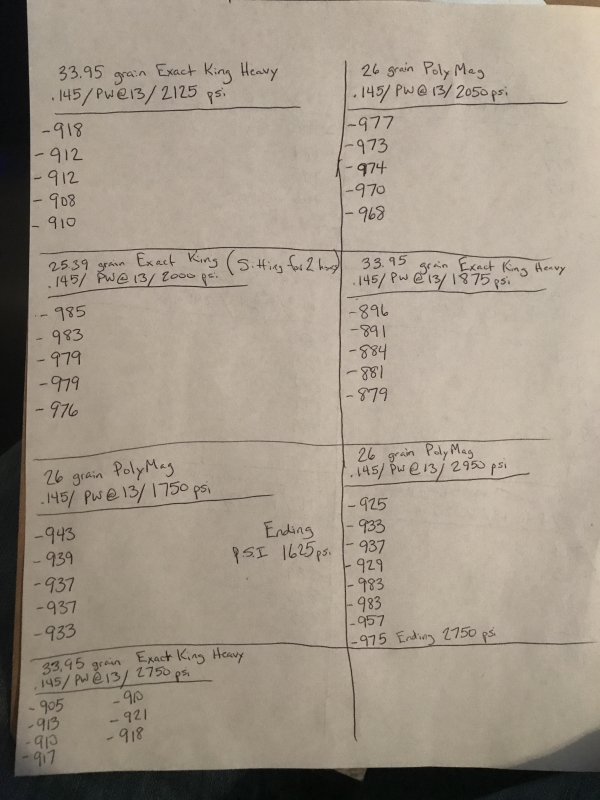 33.95 grain Exact King Heavy
.145/ PW@13/ 2125 psi
-918
-912
-912
-908
-910
26 grain PolyMag
.145/ PW@13/ 2050 psi
-977
-973
-974
-970
-968
25.39 grain Exact King (Sitting for 2 hours)
.145/ PW@13/ 2000 psi
-985
-983
-979
-979
-976
33.95 grain Exact King Heavy
.145/ PW@13/ 1875 psi
-896
-891
-884
-881
-879
26 grain PolyMag
.145/ PW@13/ 1750 psi
-943
-939
-937
-937
-933
Ending
P.S.I 1625 psi
26 grain PolyMag
.145/ PW@13/ 2950 psi
-925
-933
-937
-929
-983
-983
-957
-975 Ending 2750 psi
33.95 grain Exact King Heavy
.145/ PW@13/ 2750 psi
-905
-913
-910
-917
-910
-921
-918